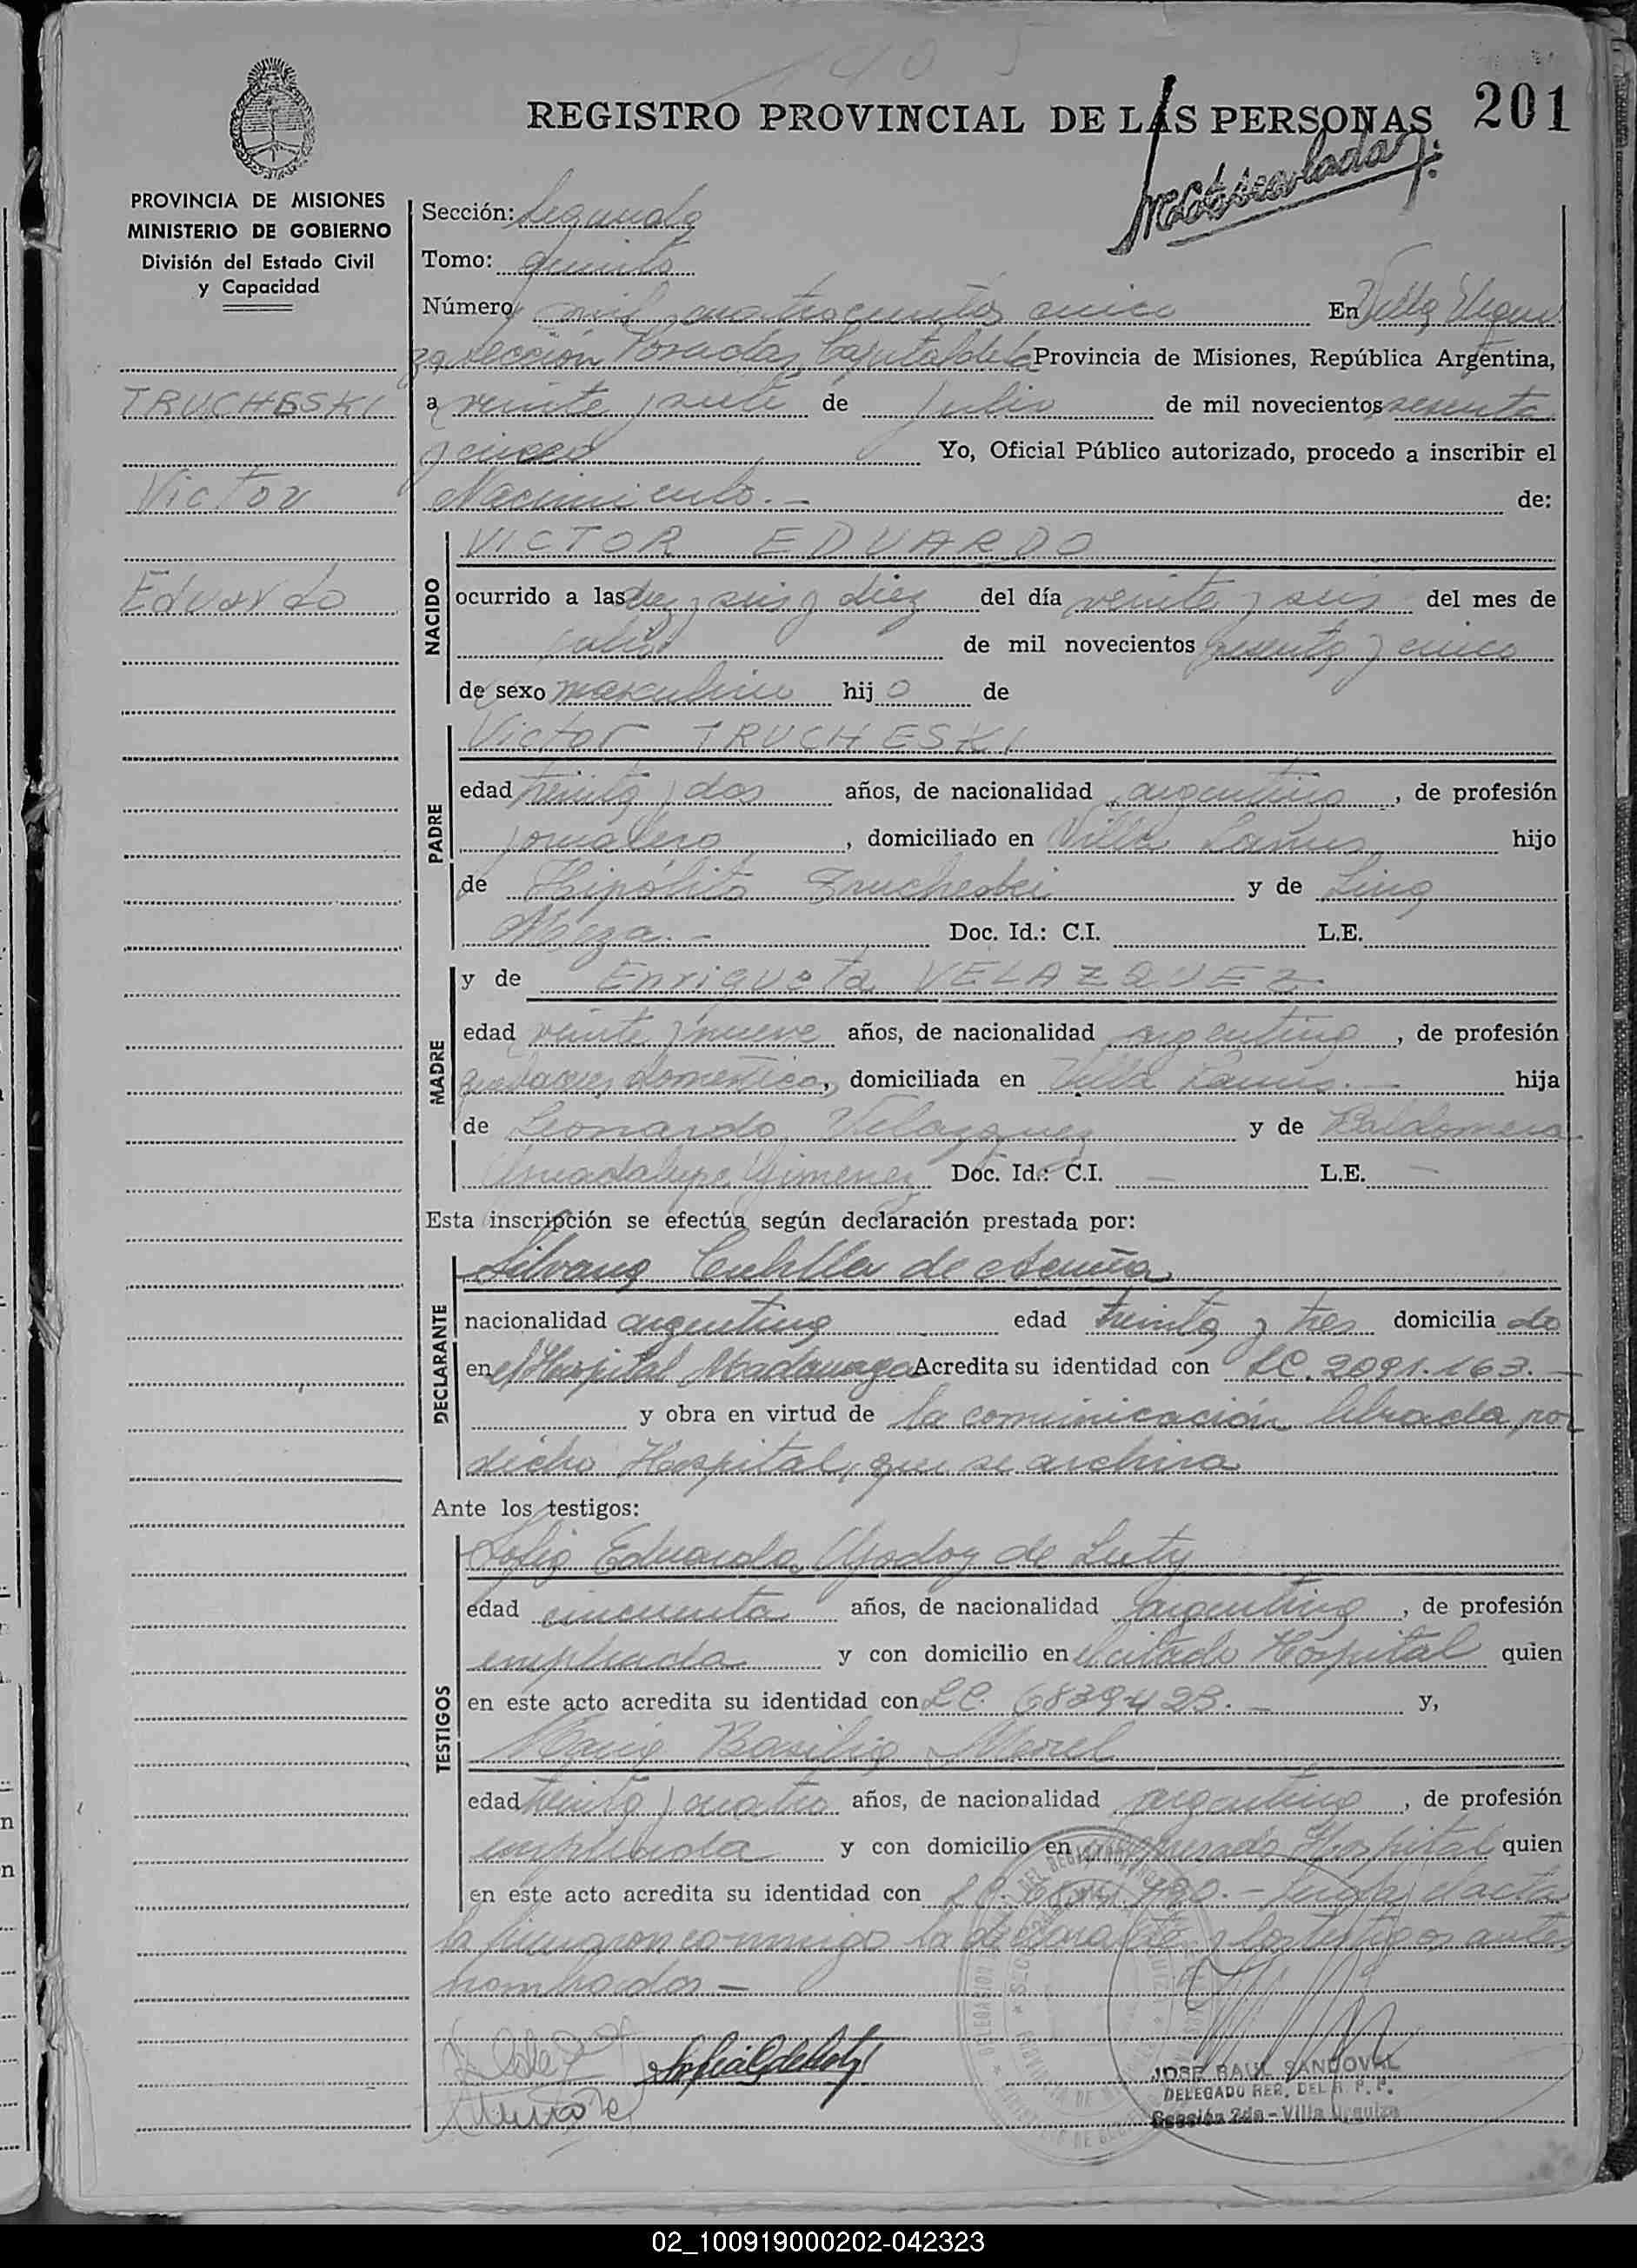 REGISTRO PROVINCIAL DE LAS PERSONAS 201
PROVINCIA DE MISIONES
MINISTERIO DE GOBIERNO
División del Estado Civil
y Capacidad
TRUCHESKI
Victor
Eduardo
Sección: Segunda
Tomo: Quinto
Número mil cuatrocientos cinco En Villa Urqui
za sección Posadas, Capital de la Provincia de Misiones, República Argentina,
a veinte y siete de Julio de mil novecientos sesenta
y cinco Yo, Oficial Público autorizado, procedo a inscribir el
Nacimiento.- de:
NACIDO
VICTOR EDUARDO
ocurrido a las diez y seis y diez del día veinte y seis del mes de
julio de mil novecientos sesenta y cinco
de sexo masculino hijo de
PADRE
Victor TRUCHESKI
edad treinta y dos años, de nacionalidad argentino, de profesión
jornalero, domiciliado en Villa Lanus hijo
de Hipólito Trucheski y de Lina
Meza.- Doc. Id.: C.I. L.E.
MADRE
y de Enriqueta VELAZQUEZ
edad veinte y nueve años, de nacionalidad argentina, de profesión
quehaceres domesticos, domiciliada en Villa Lanus.- hija
de Leonardo Velazquez y de Baldomera
Guadalupe Gimenez Doc. Id.: C.I. - L.E. -
Esta inscripción se efectúa según declaración prestada por:
DECLARANTE
Silvana Cubilla de Acuña
nacionalidad argentina edad treinta y tres domiciliada
en el Hospital Madariaga Acredita su identidad con LC. 2091.163.-
y obra en virtud de la comunicación librada por
dicho Hospital, que se archiva
Ante los testigos:
TESTIGOS
Sofia Eduarda Godoy de Luty
edad cincuenta años, de nacionalidad argentina, de profesión
empleada y con domicilio en el citado Hospital quien
en este acto acredita su identidad con LC. 6839423.- y,
Maria Basilia Morel
edad treinta y cuatro años, de nacionalidad argentina, de profesión
empleada y con domicilio en Hospital quien
en este acto acredita su identidad con LC. - Leida el acta
la firmaron conmigo la declarante y los testigos antes
nombrados -
JOSE RAUL SANDOVAL
DELEGADO REG. DEL R. P. P.
Sección 2da - Villa Urquiza
02_100919000202-042323